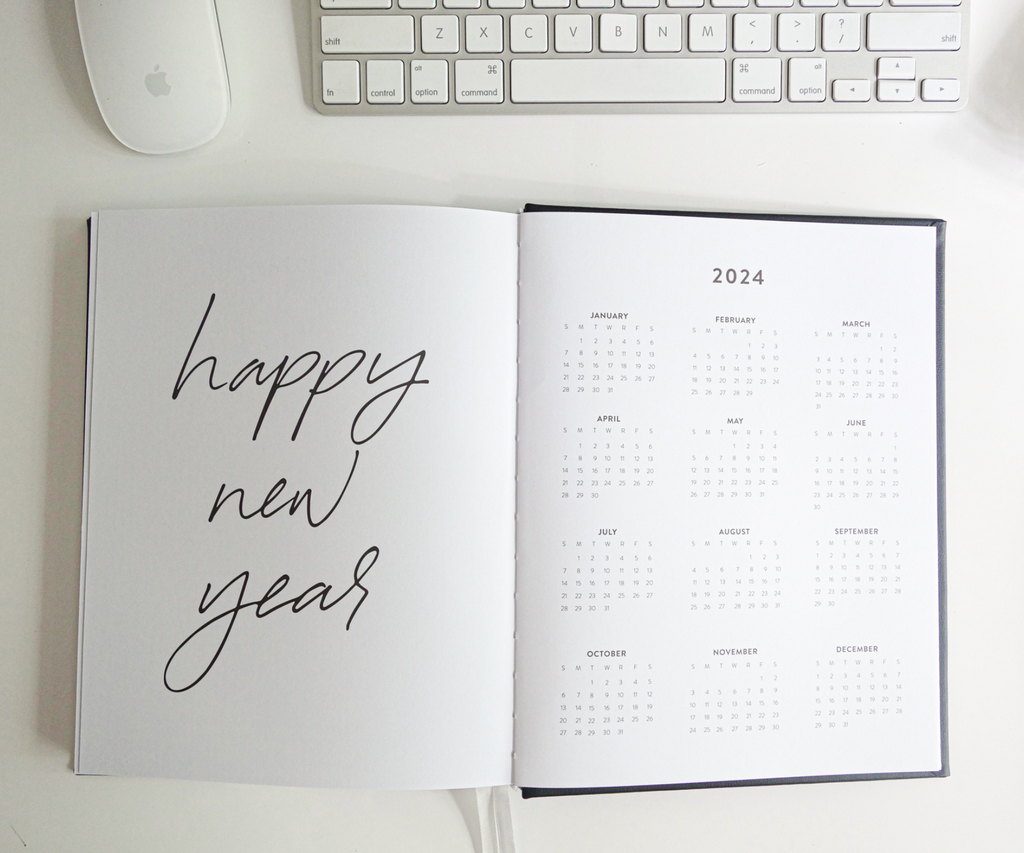 shift Z X C V B N M < , > . ? / shift
fn control alt option ⌘ command ⌘ command alt option ◄ ▲ ▼ ►
happy
new
year
2024
JANUARY
S M T W R F S
1 2 3 4 5 6
7 8 9 10 11 12 13
14 15 16 17 18 19 20
21 22 23 24 25 26 27
28 29 30 31
FEBRUARY
S M T W R F S
1 2 3
4 5 6 7 8 9 10
11 12 13 14 15 16 17
18 19 20 21 22 23 24
25 26 27 28 29
MARCH
S M T W R F S
1 2
3 4 5 6 7 8 9
10 11 12 13 14 15 16
17 18 19 20 21 22 23
24 25 26 27 28 29 30
31
APRIL
S M T W R F S
1 2 3 4 5 6
7 8 9 10 11 12 13
14 15 16 17 18 19 20
21 22 23 24 25 26 27
28 29 30
MAY
S M T W R F S
1 2 3 4
5 6 7 8 9 10 11
12 13 14 15 16 17 18
19 20 21 22 23 24 25
26 27 28 29 30 31
JUNE
S M T W R F S
1
2 3 4 5 6 7 8
9 10 11 12 13 14 15
16 17 18 19 20 21 22
23 24 25 26 27 28 29
30
JULY
S M T W R F S
1 2 3 4 5 6
7 8 9 10 11 12 13
14 15 16 17 18 19 20
21 22 23 24 25 26 27
28 29 30 31
AUGUST
S M T W R F S
1 2 3
4 5 6 7 8 9 10
11 12 13 14 15 16 17
18 19 20 21 22 23 24
25 26 27 28 29 30 31
SEPTEMBER
S M T W R F S
1 2 3 4 5 6 7
8 9 10 11 12 13 14
15 16 17 18 19 20 21
22 23 24 25 26 27 28
29 30
OCTOBER
S M T W R F S
1 2 3 4 5
6 7 8 9 10 11 12
13 14 15 16 17 18 19
20 21 22 23 24 25 26
27 28 29 30 31
NOVEMBER
S M T W R F S
1 2
3 4 5 6 7 8 9
10 11 12 13 14 15 16
17 18 19 20 21 22 23
24 25 26 27 28 29 30
DECEMBER
S M T W R F S
1 2 3 4 5 6 7
8 9 10 11 12 13 14
15 16 17 18 19 20 21
22 23 24 25 26 27 28
29 30 31